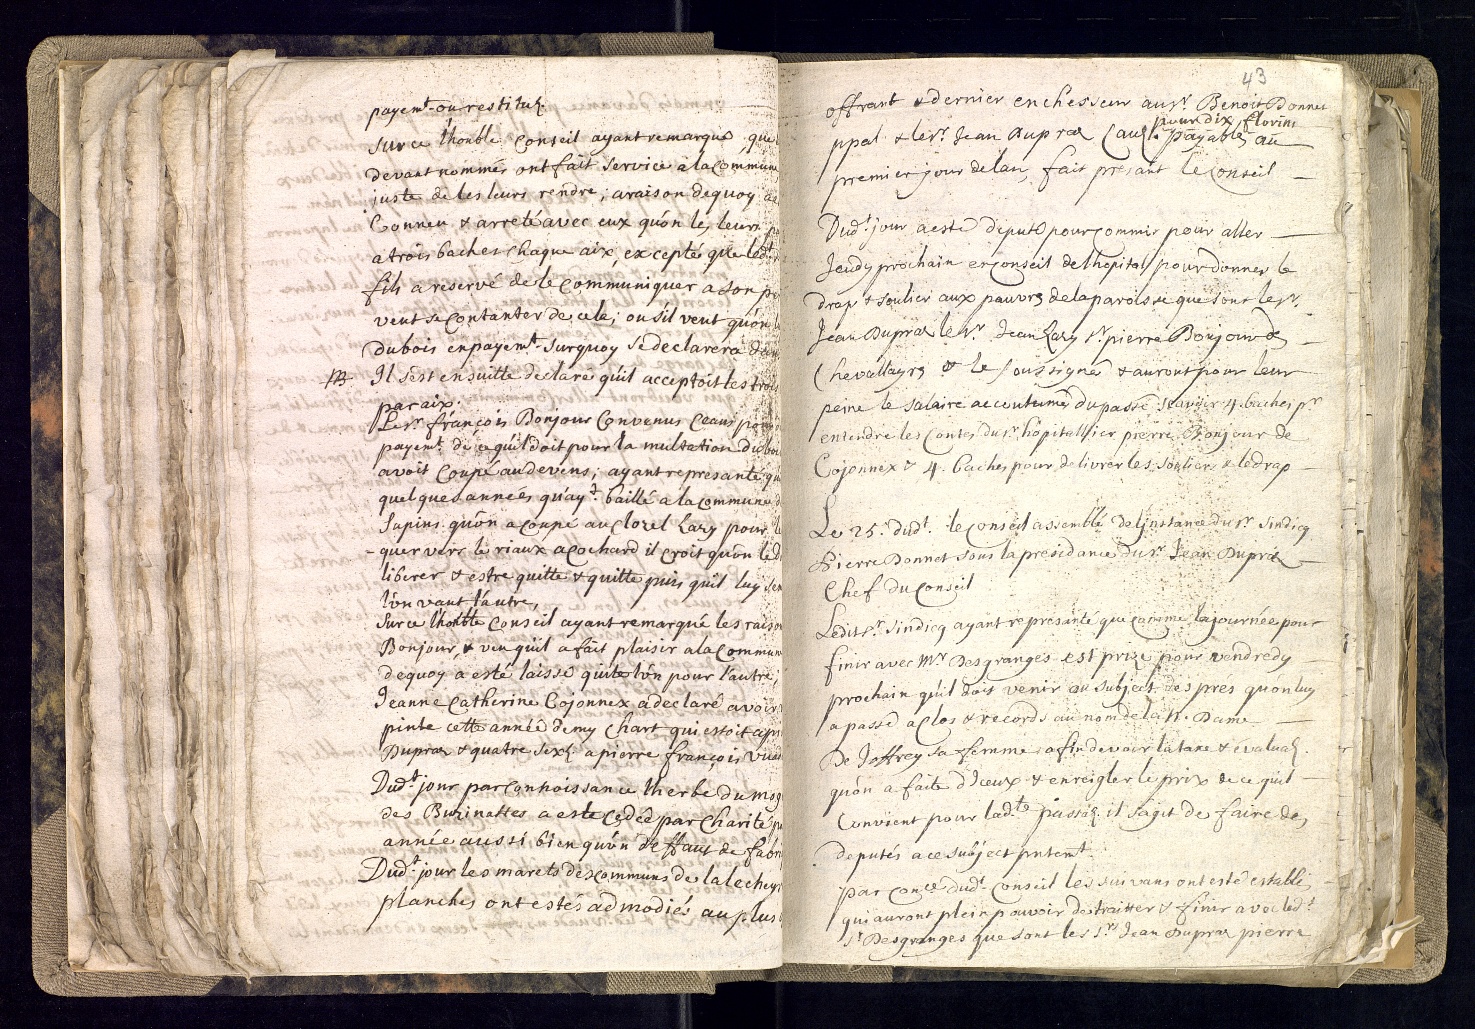 payemt. ou restituõn
Sur ce lhonble Conseil ayant remarqué, que
devant nommés ont fait service a la Commune
juste de les leurs rendre; a raison de quoy a
Conneu & arreté avec eux quón les leurs
a trois baches chaque aix, exceptés que ledt.
fils a reservé de le communiquer a son
veut se Contanter de cela; ou sil veut quón
du bois en payemt. surquoy se declarera
NB Il sest ensuitte declaré quil acceptoit les trois
par aix.
Le sr. françois Bonjour Convenus Ceans pour
payemt. de ce quil doit pour la multation du bois
avoit Coupé au devens; ayant representé
quelques années qu'ayt. baillé a la Commune
Sapins quón a Coupé au Clozel Lazy pour
quer vers le riaux a Cochard il Croit quón le
liberer & estre quitte & quitte puis quil luy
lún vaut l'autre,
Sur ce lhonble Conseil ayant remarqué les raisons
Bonjour, & veu quil a fait plaisir a la Commune
de quoy a esté laissé quite lún pour l'autre,
Jeanne Catherine Cojonnex a declaré avoir
pinte cette année demy Chart qui estoit a
Dupraz & quatre sexz. a pierre françois
Dudt. jour par Connoissance lherbe du
des Buzinattes a esté Cedée par Charité
année aussi bien quón deffaut de
Dudt. jour les marets des Communs de la lechey
planches ont estés admodiés au plus
43
offrant & dernier encheseur au sr. Benoit Bonnet
pour dix florins
ppal & le sr. Jean Dupraz Cauõn. payable au
premier jour de lan, fait présant le Conseil
Dudt. jour a esté deputé pour Commis pour aller
Jeudy prochain en Conseil de lhopital pour donner le
drap & soulier aux pauvrs de la paroisse que sont le sr.
Jean Dupraz le sr. Jean Lazy sr. pierre Bonjour de
Chevallayrs & le soussigné & auront pour leur
peine le salaire accoutumé du passé scavoir 4. baches pr
entendre les Contes du sr. hopitallier pierre Bonjour de
Cojonnex & 4. baches pour delivrer les souliers & le drap
Le 25e. dudt. le Conseil assemblé de linstance du sr. Sindicq
Pierre Bonnet sous la présidance du sr. Jean Dupraz
Chef du Conseil
Ledit sr. Sindicq ayant représanté que comme la journée pour
finir avec Mr. Desgranges est prize pour vendredy
prochain quil doit venir au subject des prés quón luy
a passé a clos & records au nom de la N. Dame
De Joffrey sa femme, afin de voir la taxe & évaluaõn
quón a faite d'Iceux & en reigler le prix de ce quil
Convient pour ladte. passaõn. il sagit de faire des
deputés a ce subject pntemt.
par Conce. dudt. Conseil les suivans ont esté establis,
qui auront plein pouvoir de traitter & finir avec ledt.
sr. Desgranges que sont les srs. Jean Dupraz pierre